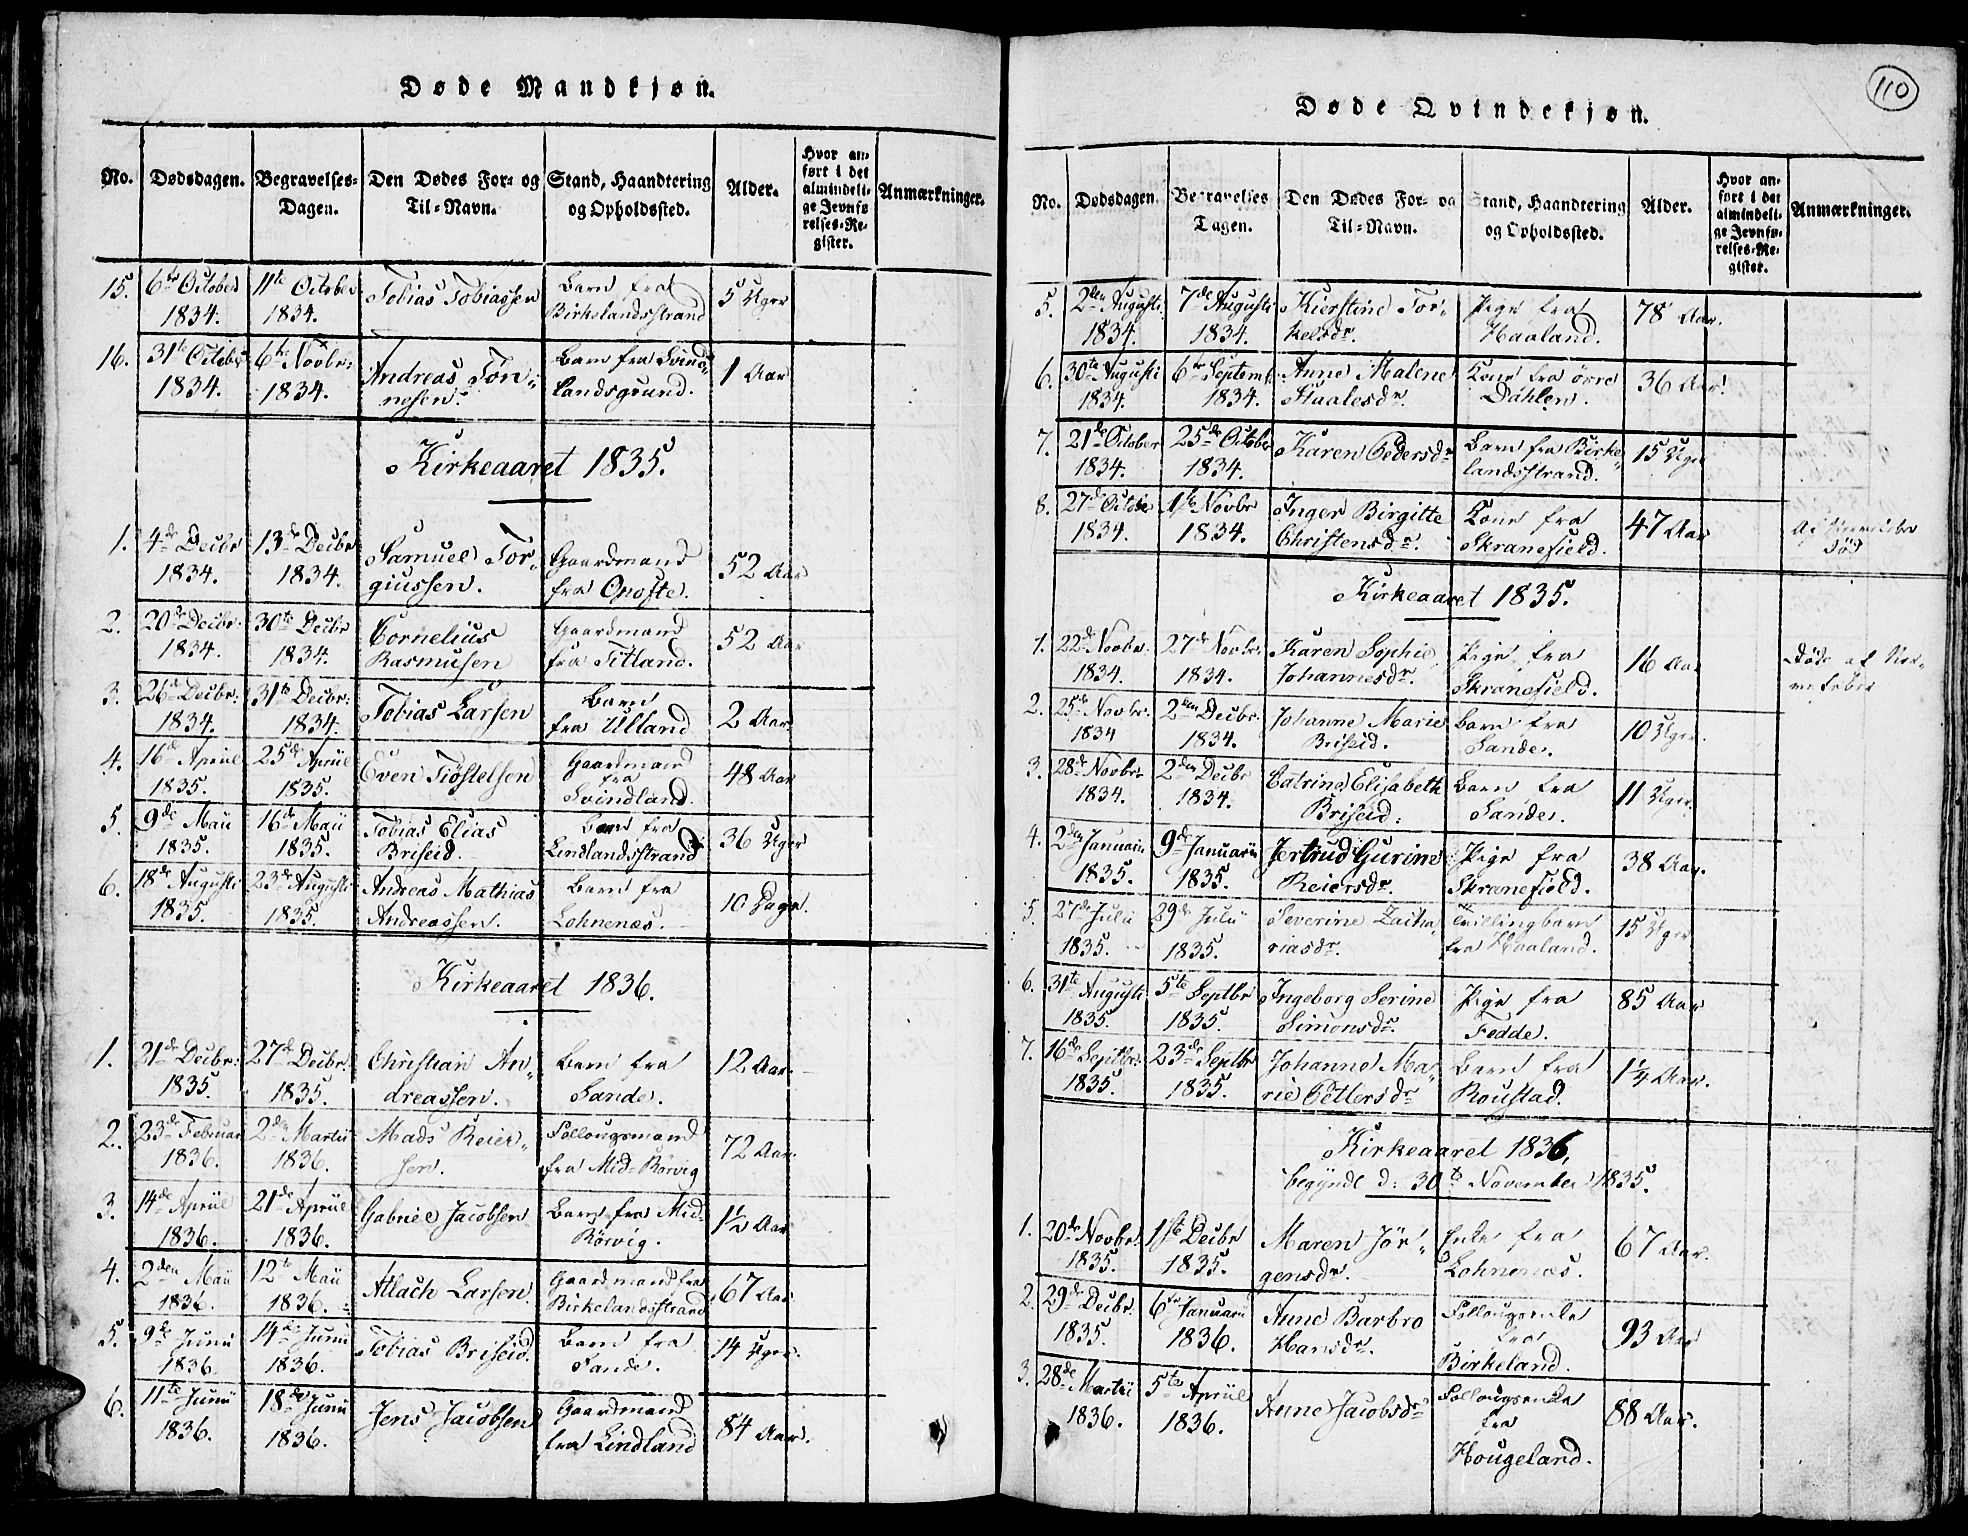 Døde Mandkjøn.
No. Dødsdagen. Begravelses-Dagen. Den Dødes For- og Til-Navn. Stand, Haandtering og Opholdssted. Alder. Hvor anført i det almindelige Jevnførelses-Register. Anmærkninger.
15. 6te October 1834. 11te October 1834. Tobias Tobiassen Barn fra Birkelandsstrand 5 Uger
16. 31te October 1834. 6te Novbr: 1834. Andreas Tønnesen. Barn fra Svindlandsgrund. 1 Aar
Kirkeaaret 1835.
1. 4de Decbr 1834. 13de Decbr 1834. Samuel Torgiussen. Gaardmand fra Opofte. 52 Aar
2. 20de Decbr. 1834. 30te Decbr 1834. Cornelius Rasmusen Gaardmand fra Titland. 52 Aar
3. 26de Decbr. 1834. 31te Decbr: 1834. Tobias Larsen Barn fra Ulland 2 Aar.
4. 16de Apriil 1835. 25de Apriil 1835. Even Tiöstelsen Gaardmand fra Svindland. 48 Aar
5. 9de Maii 1835. 16de Maii 1835. Tobias Elias Briseid. Barn fra Lindlandsstrand 36 Uger
6. 18de Augusti 1835. 23de Augusti 1835. Andreas Mathias Andreassen. Barn fra Lohnenæs. 10 Dage.
Kirkeaaret 1836.
1. 21de Decbr: 1835. 27de Decbr. 1835. Christian Andreassen. Barn fra Sande. 12 Aar.
2. 23de Februar 1836. 2den Martii 1836. Mads Reiersen. Follougsmand fra Mid-Rörvig 72 Aar.
3. 14de Apriil 1836. 21de Apriil 1836. Gabriel Jacobsen Barn fra Mid-Rörvig. 1½ Aar
4. 2den Maii 1836. 12te Maii 1836. Atlach Larsen. Gaardmand fra Birkelandsstrand 67 Aar
5. 9de Junii 1836. 14de Junii 1836. Tobias Briseid. Barn fra Sande. 14 Uger.
6. 11te Junii 1836. 18de Junii 1836. Jens Jacobsen Gaardmand fra Lindland 84 Aar.
110
Døde Qvindekjøn.
No. Dødsdagen. Begravelses Dagen. Den Dødes For- og Til-Navn. Stand, Haandtering og Opholdssted. Alder. Hvor anført i det almindelige Jevnførelses-Register. Anmærkninger.
5. 2den Augusti 1834. 7de Augusti 1834. Kierstine Torkelsdr. Pige fra Haaland. 78 Aar.
6. 30te Augusti 1834. 6te Septemb. 1834. Anne Malene Staalesdr. Kone fra övre Dahlen. 36 Aar.
7. 21de October 1834. 25de October 1834. Karen Pedersdr Barn fra Birkelandsstrand. 15 Uger
8. 27de October 1834. 1ste Novbr 1834. Inger Birgitte Christensdr. Kone fra Skranefield. 47 Aar Af Nervefeber död
Kirkeaaret 1835.
1. 22de Novbr. 1834. 27de Novbr. 1834. Karen Sophie Johannesdr. Pige fra Skranefield. 16 Aar Döde af Nervefeber
2. 25de Novbr. 1834 2den Decbr. 1834. Johanne Marie Briseid. Barn fra Sande. 10 Uger.
3. 28de Novbr 1834. 2den Decbr 1834. Catrine Elisabeth Briseid. Barn fra Sande. 11 Uger
4. 2den Januari 1835. 9de Januarii 1835. Jertrud Gurine Reiersdr. Pige fra Skranefield. 38 Aar.
5. 27de Julii 1835. 29de Julii 1835. Severine Zachariasdr. Tvillingbarn fra Haaland. 15 Uger
6. 31te Augusti 1835. 5te Septbr 1835. Ingeborg Serine Simonsdr. Pige fra Fedde. 85 Aar
7. 16de Septbr. 1835. 23de Septbr 1835. Johanne Marie Pettersdr Barn fra Roustad. 1¼ Aar.
Kirkeaaret 1836,
begyndt d: 30te November 1835.
1. 20de Novbr. 1835. 1ste Decbr 1835. Maren Jörgensdr. Enke fra Lohnenæs. 67 Aar.
2. 29de Decbr. 1835. 6te Januarii 1836. Anne Barbro Hansdr. Follougsenke fra Birkeland. 93 Aar
3. 28de Martii 1836. 5te Apriil 1836. Anne Jacobsdr Follougsenke fra Hougeland. 88 Aar.